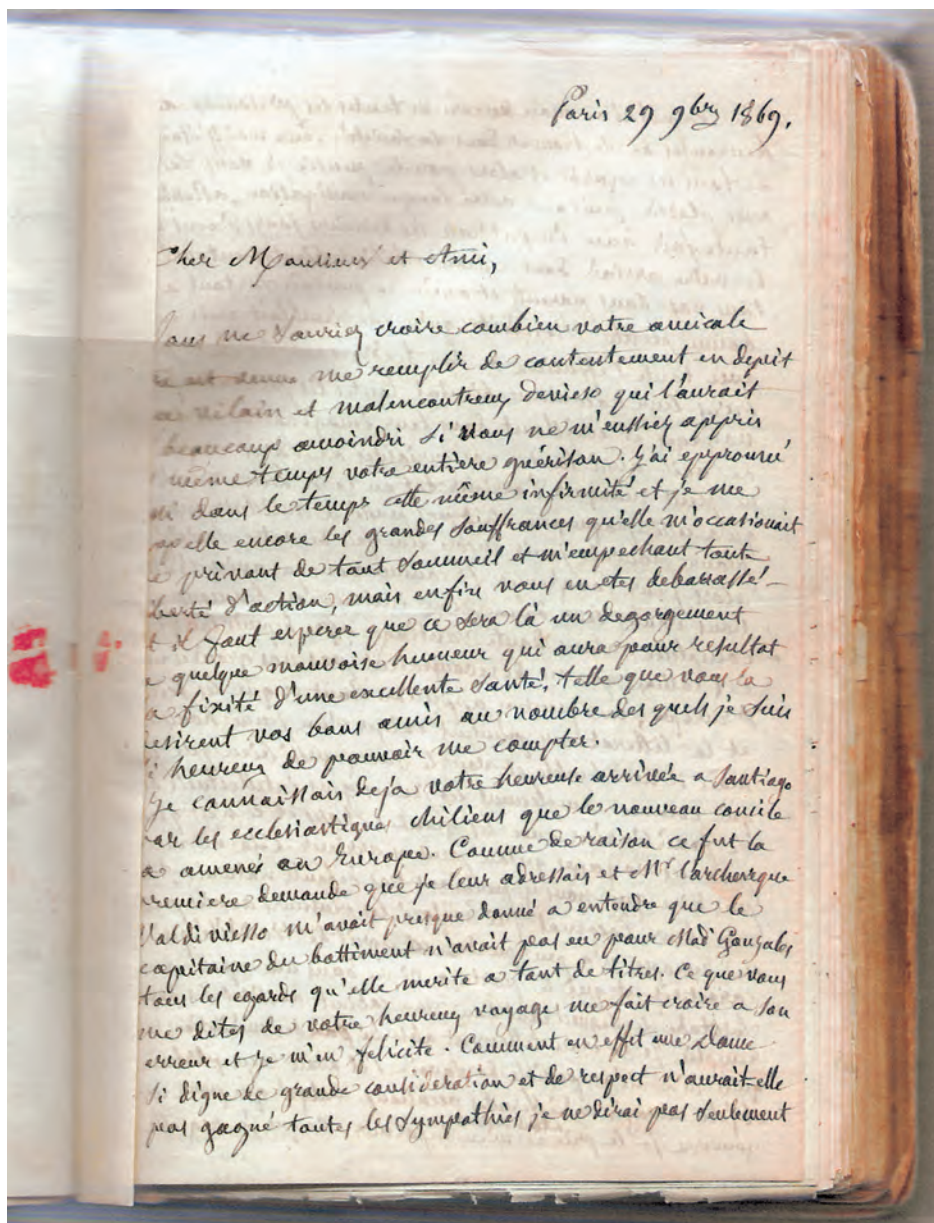 Paris 29 9bre 1869.
Cher Monsieur et Ami,
Vous ne sauriez croire combien votre amicale
est venue me remplir de contentement en depit
vilain et malencontreux qui l'aurait
beaucoup amoindri si vous ne m'eussiez appris
même temps votre entière guérison. J'ai epprouvé
dans le temps cette même infirmité et je me
encore les grandes souffrances qu'elle m'occasionait
privant de tout sommeil et m'empechant toute
berté d'action, mais enfin vous en etes debarassé
t il faut esperer que ce sera là un degorgement
e quelque mauvaise humeur qui aura pour resultat
a fixité d'une excellente santé, telle que vous la
esirent vos bons amis au nombre des quels je suis
i heureux de pouvoir me compter.
Je connaissais deja votre heureuse arrivée a Santiago
ar les ecclesiastiques chiliens que le nouveau concile
a amenés en Europe. Comme de raison ce fut la
remiere demande que je leur adressais et Mr l'archeveque
Valdivieso m'avait presque donné a entendre que le
capitaine du battiment n'avait pas eu pour Mad Gonzales
tous les egards qu'elle merite a tant de titres. Ce que vous
me dites de votre heureux voyage me fait croire a son
erreur et je m'en felicite. Comment en effet une Dame
si digne de grande consideration et de respect n'aurait-elle
pas gagné toutes les sympathies je ne dirai pas seulement